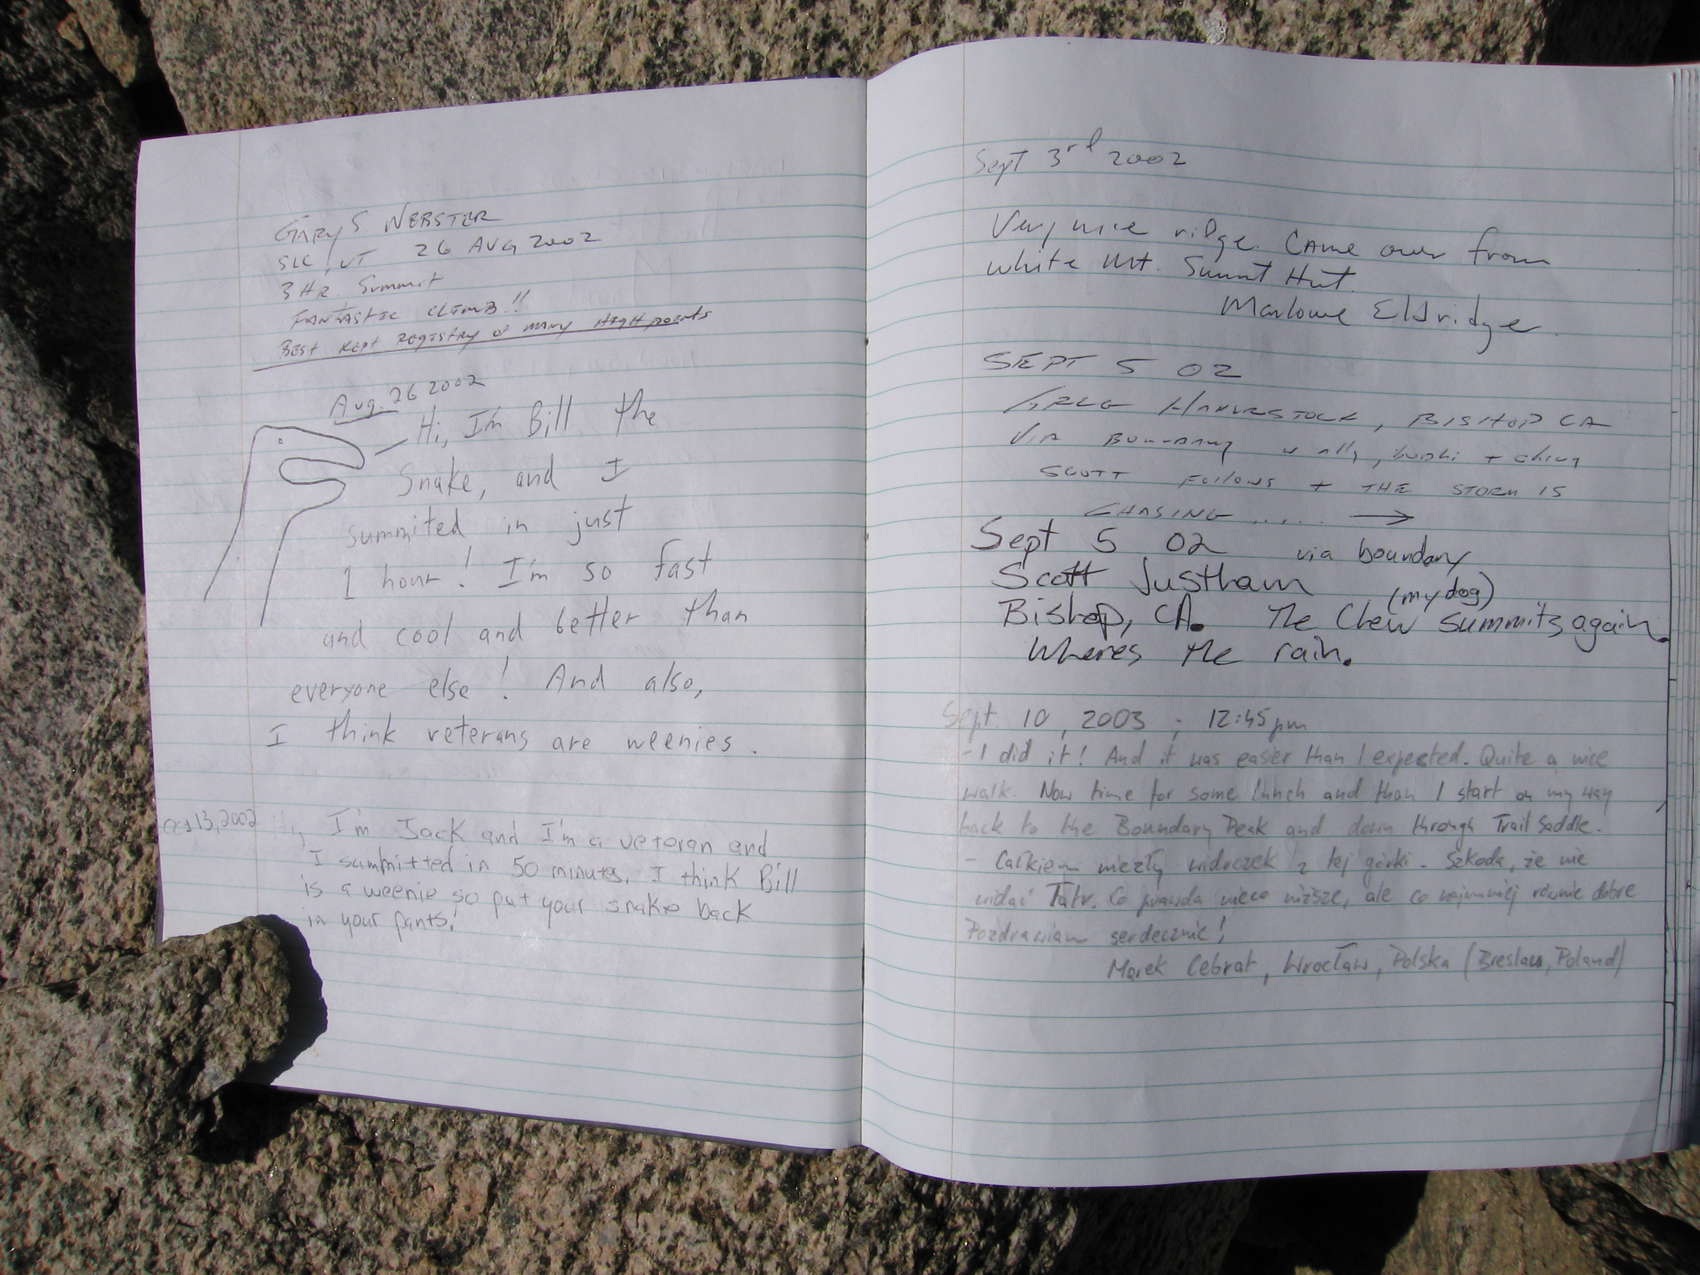 GARY S WEBSTER
SLC, UT 26 AUG 2002
3 HR Summit
FANTASTIC CLIMB!!
BEST KEPT REGISTRY of MANY HIGH points
Aug. 26 2002
Hi, I'm Bill the
Snake, and I
summited in just
1 hour! I'm so fast
and cool and better than
everyone else! And also,
I think veterans are weenies.
Oct 13, 2002
I'm Jack and I'm a veteran and
I summitted in 50 minutes. I think Bill
is a weenie so put your snake back
in your pants!
Sept 3rd 2002
Very nice ridge. Came over from
White Mt. Summit Hut.
Marlowe Eldridge
SEPT 5 02
GREG HAVERSTOCK, BISHOP CA
VIA BOUNDARY
SCOTT FOLLOWS + THE STORM IS
CHASING ..... →
Sept 5 02 via boundary
Scott Justham
(my dog)
Bishop, CA. The Chew summits again.
Wheres the rain.
Sept. 10, 2003, 12:45pm
- I did it! And it was easier than I expected. Quite a nice
walk. Now time for some lunch and than I start on my way
back to the Boundary Peak and down through Trail Saddle.
- Całkiem niezły widoczek z tej górki. Szkoda, że nie
widać Tatr. Co prawda nieco niższe, ale co najmniej równie dobre
Pozdrawiam serdecznie!
Marek Cebrat, Wrocław, Polska (Breslau, Poland)